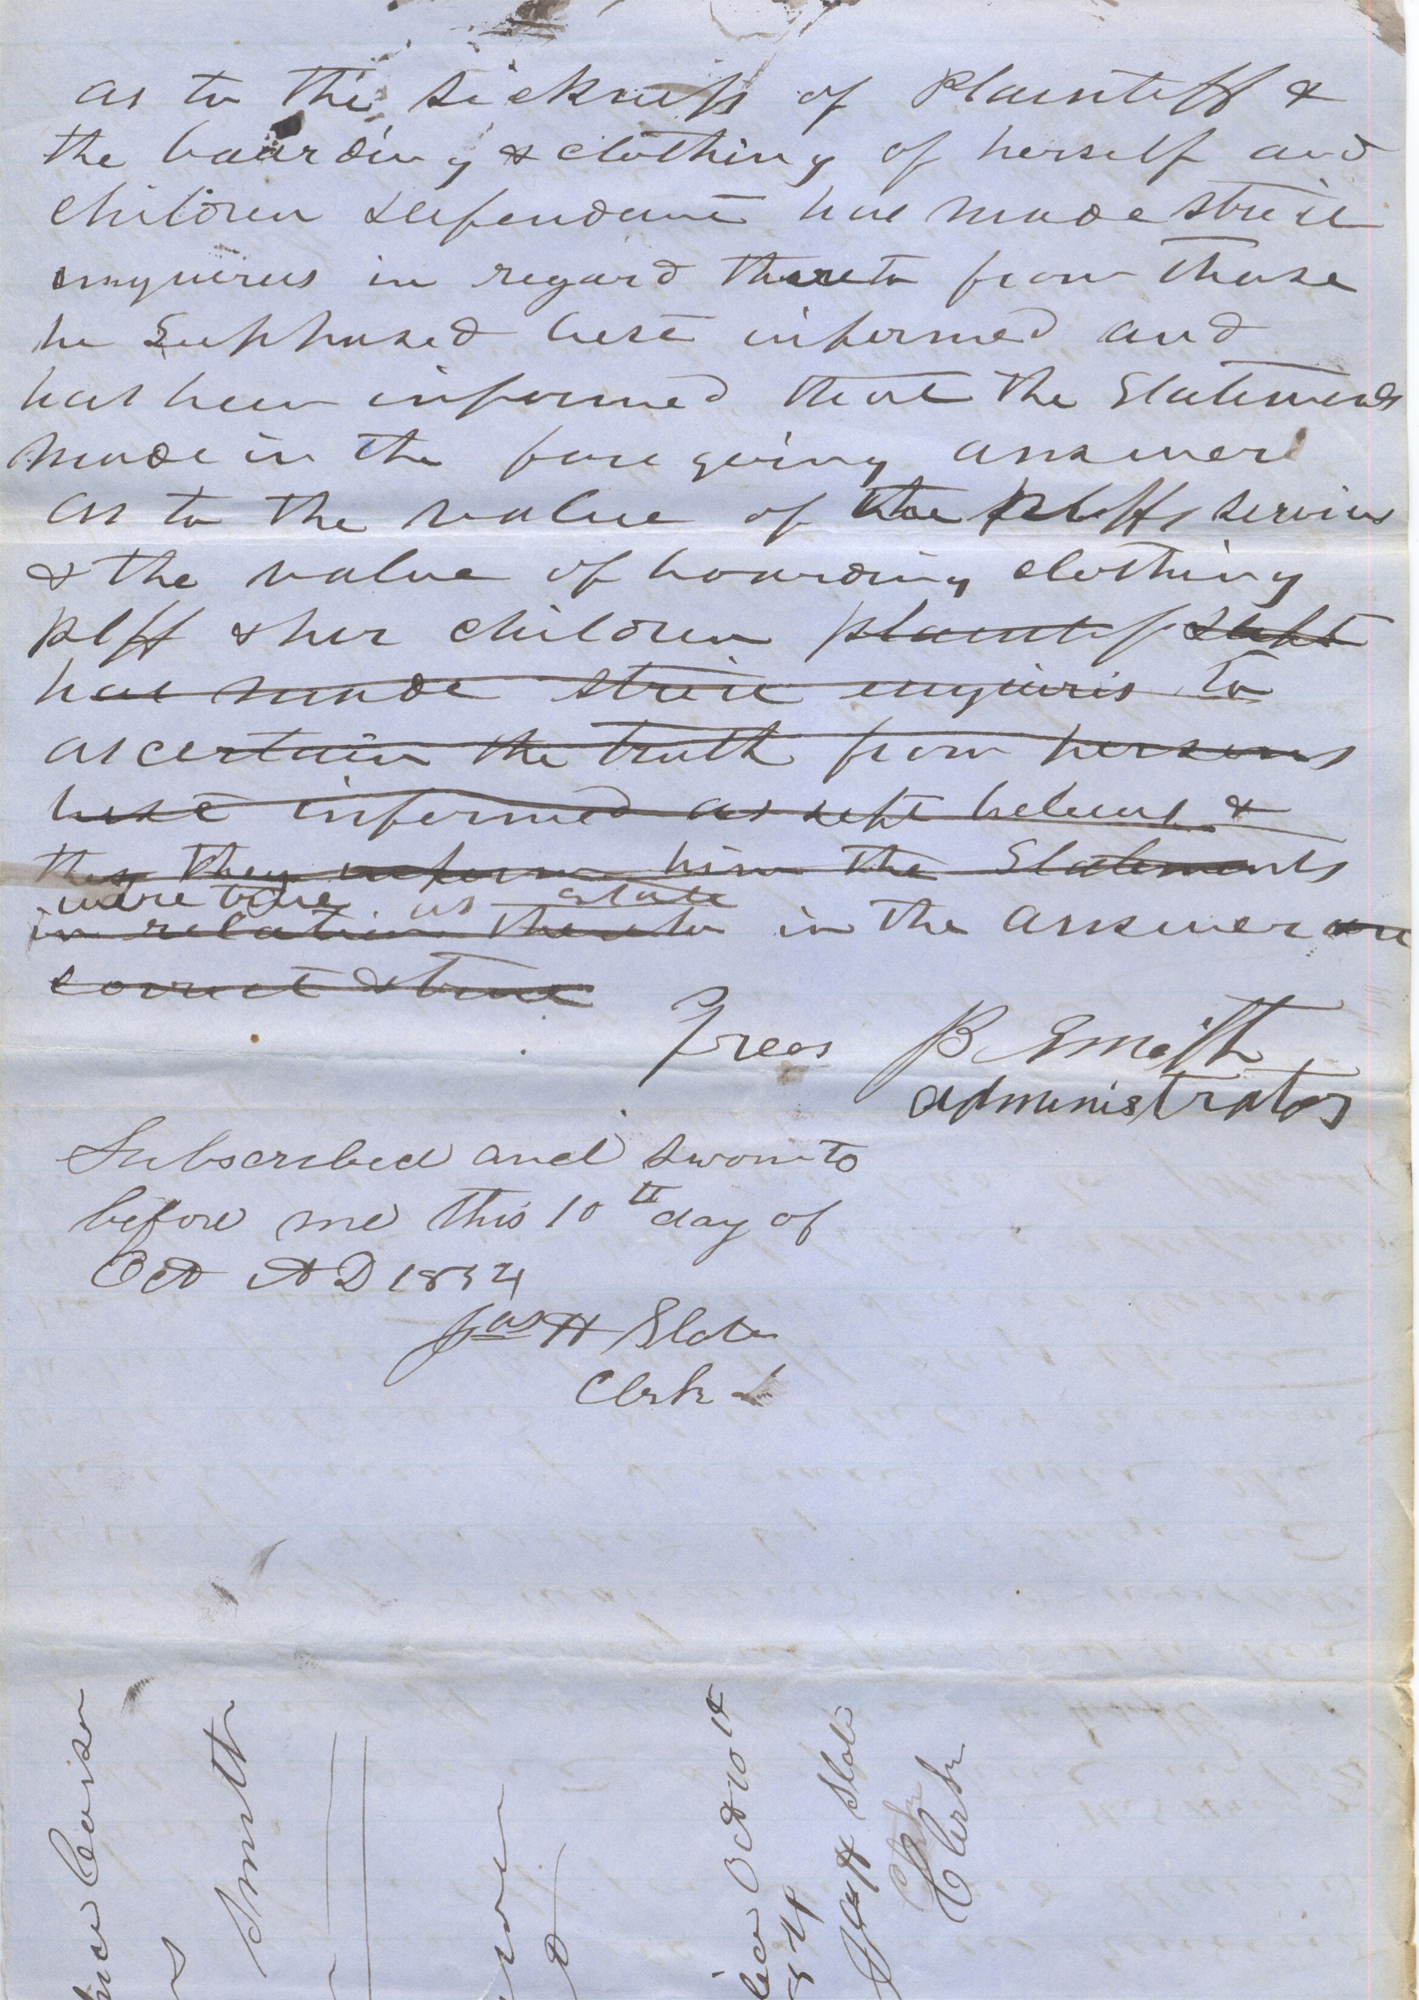 as to the sickness of Plaintiff &
the boarding & clothing of herself and
children defendant has made strict
enquires in regard thereto from those
he Supposed best informed and
has been informed that the Statements
made in the fore going answer
as to the value of the Plffs services
& the value of boarding clothing
plff & her children plaintiff deft
has made strict enquiris to
ascertain the truth from persons
best informed as deft believes &
they inform him the Statements
were true as state
in relation thereto in the answer are
correct & true
Green B Smith
administrator
Subscribed and sworn to
before me this 10th day of
Oct AD 1854
Jas H Slater
Clerk
Smith
Oct 10th
54
Jas H Slater
Clerk